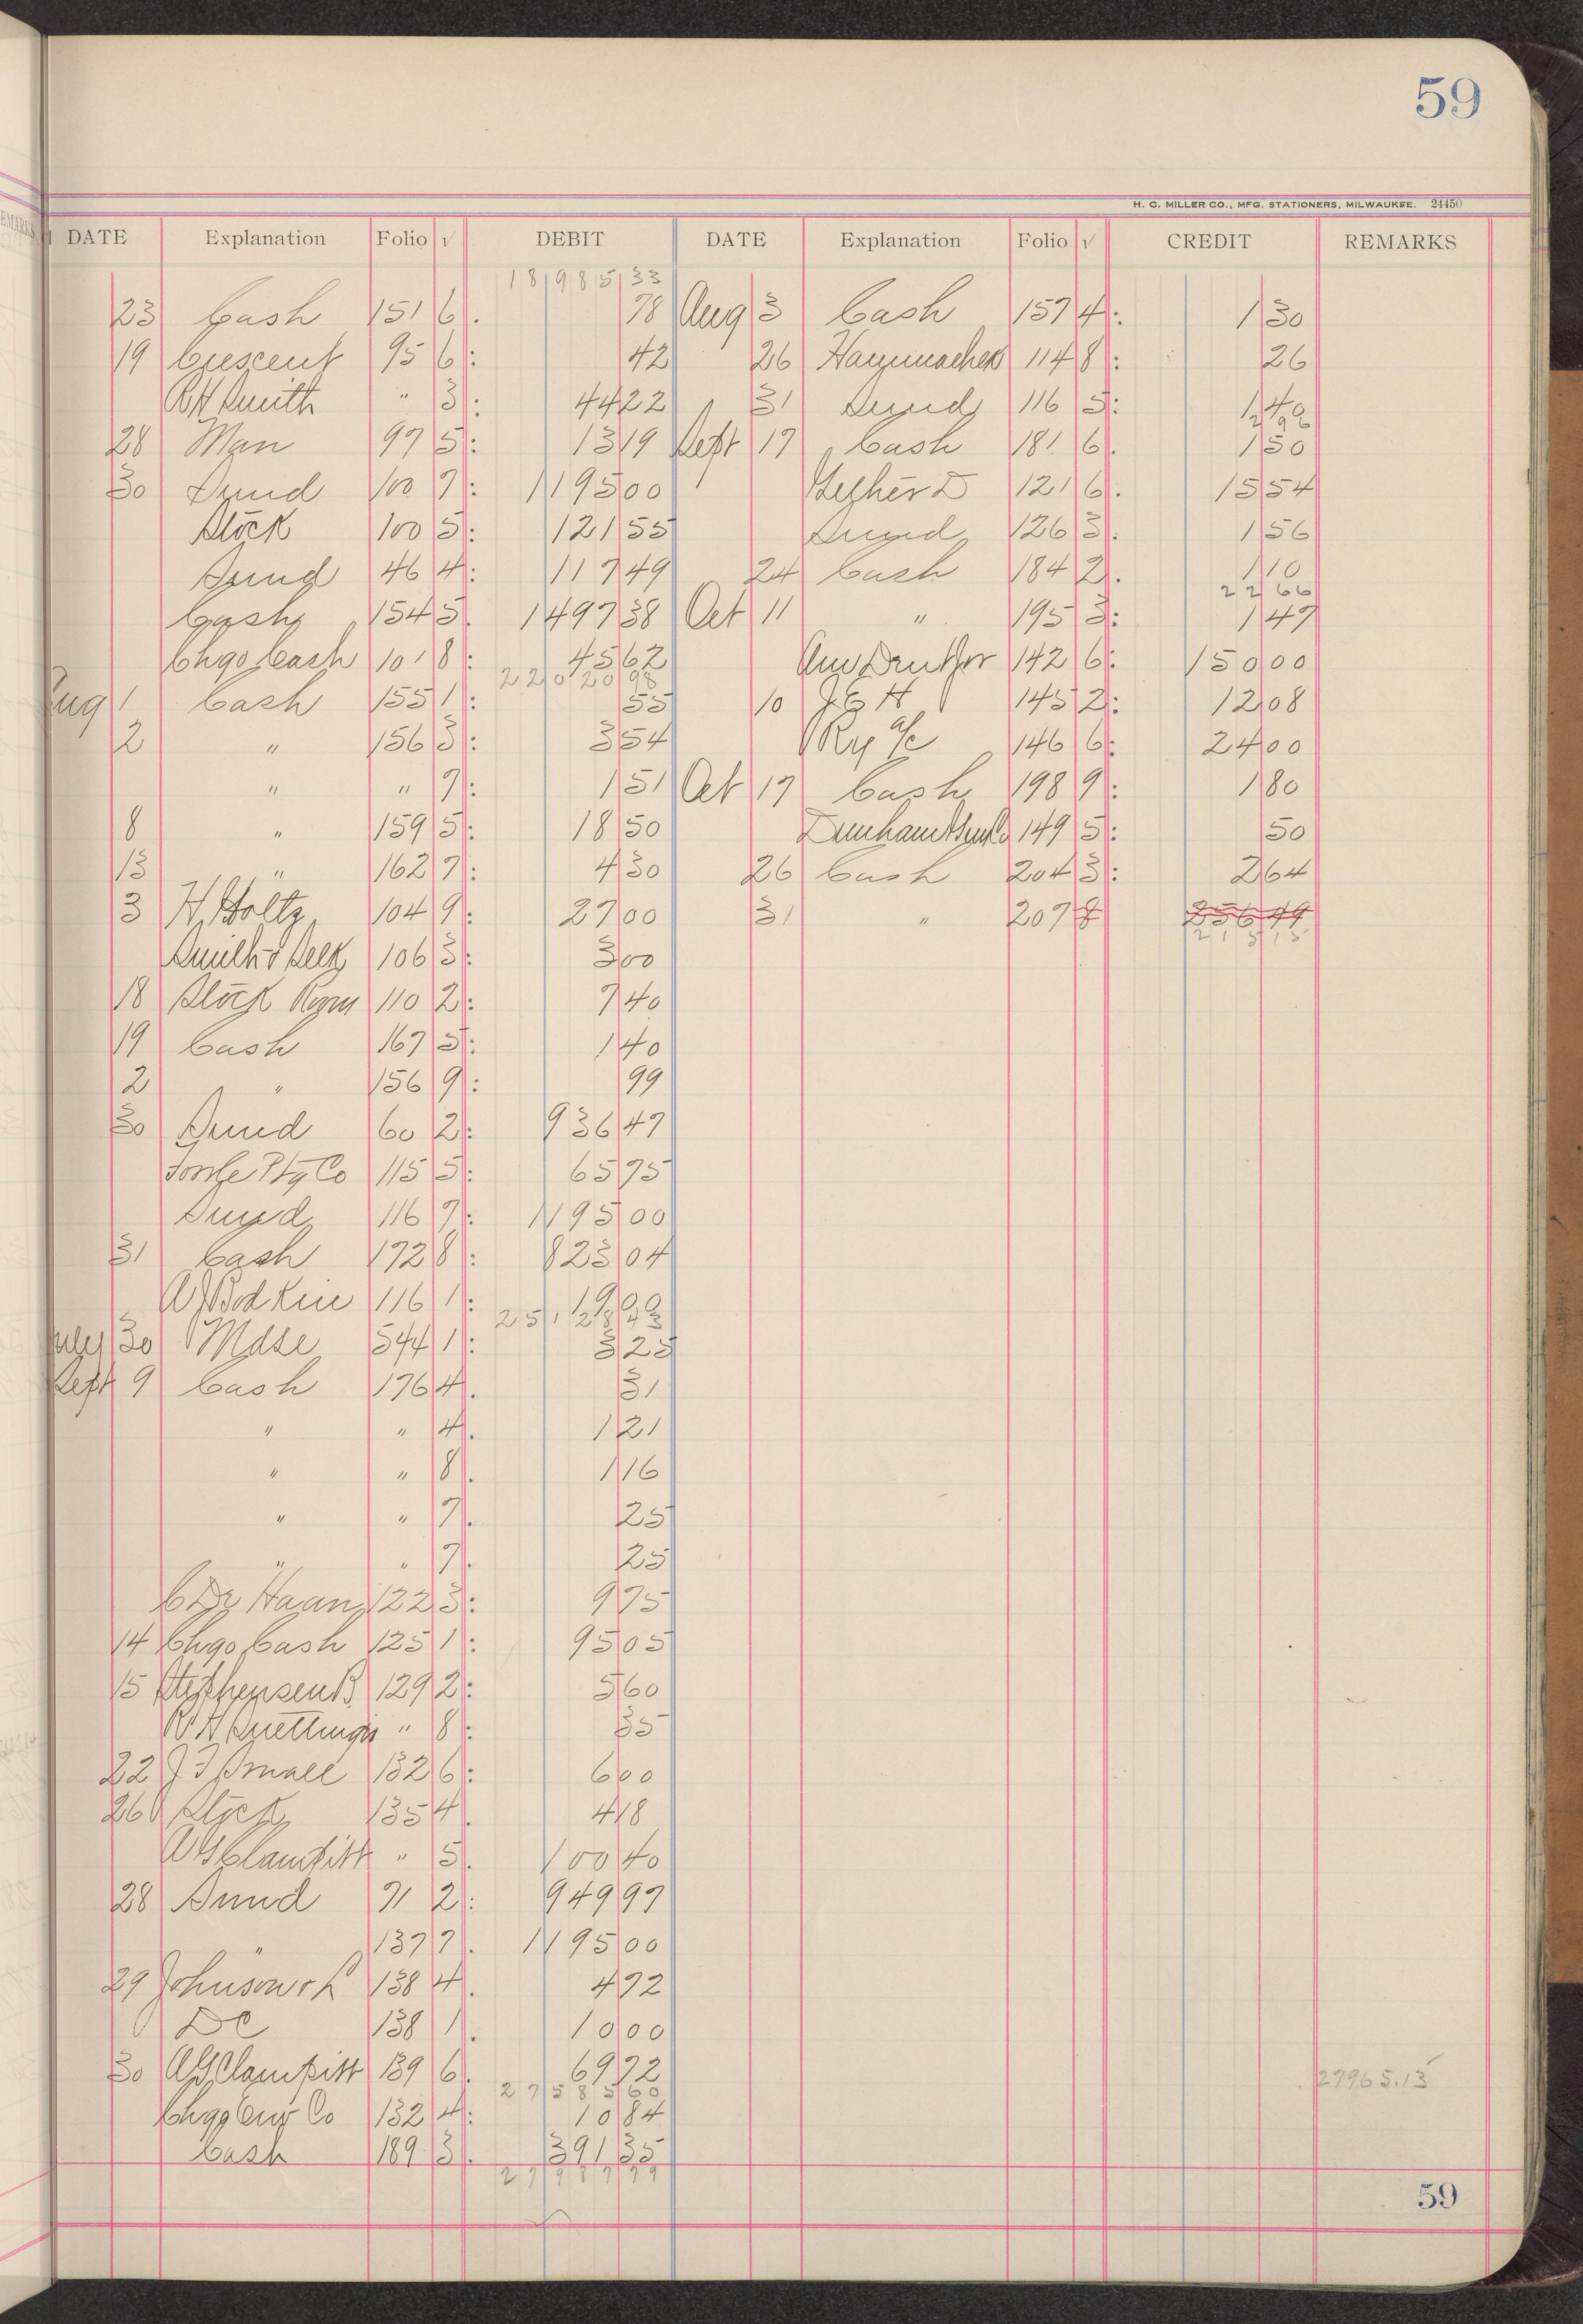 59
H. C. MILLER CO., MFG. STATIONERS, MILWAUKEE. 24450
DATE Explanation Folio √ DEBIT DATE Explanation Folio √ CREDIT REMARKS
18985 33
23 Cash 151 6 78 Aug 3 Cash 157 4 1 30
19 Crescent 95 6 42 26 Hammacher 114 8 26
RH Smith " 3 44 22 31 Sund 116 5 1 40
2 96
28 Man 97 5 13 19 Sept 17 Cash 181 6 1 50
30 Sund 100 7 1195 00 121 6 15 54
Stock 100 5 121 55 Sund 126 3 1 56
Sund 46 4 117 49 24 Cash 184 2 1 10
22 66
Cash 154 5 1497 38 Oct 11 " 195 3 1 47
Chgo Cash 101 8 45 62 142 6 150 00
22020 98
Aug 1 Cash 155 1 55 10 J E H 145 2 12 08
2 " 156 3 3 54 Ry a/c 146 6 24 00
" " 7 1 51 Oct 17 Cash 198 9 1 80
8 " 159 5 18 50 149 5 50
13 " 162 7 4 30 26 Cash 204 3 2 64
3 H Holtz 104 9 27 00 31 " 207 8 256 49
215 15
Smith & 106 3 3 00
18 Stock Room 110 2 7 40
19 Cash 167 5 1 40
2 " 156 9 99
30 Sund 60 2 936 47
Ptg Co 115 5 65 75
Sund 116 7 1195 00
31 Cash 172 8 823 04
A J Bodkin 116 1 19 00
25128 93
July 30 Mdse 544 1 3 25
Sept 9 Cash 176 4 31
" " 4 1 21
" " 8 1 16
" " 7 25
" " 7 25
C De Haan 122 3 9 75
14 Chgo Cash 125 1 95 05
15 Stephensen B 129 2 5 60
" 8 35
22 J T Small 132 6 6 00
26 Stock 135 4 4 18
A G Clampitt " 5 100 40
28 Sund 71 2 949 97
" 137 7 1195 00
29 Johnson 138 4 4 72
Do 138 1 10 00
30 A G Clampitt 139 6 69 72
27585 60
27965.15
Chgo Co 132 4 10 84
Cash 189 3 391 35
27987 79
59